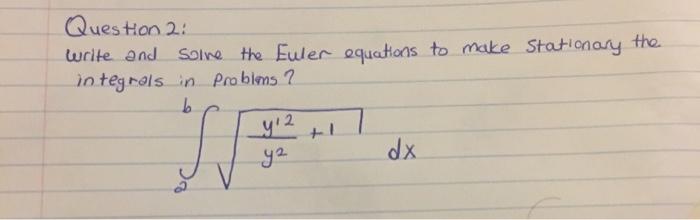 Question 2:
Write and Solve the Euler equations to make Stationary the
integrals in Problems?
b
∫ √ y'2 / y2 + 1 dx
a